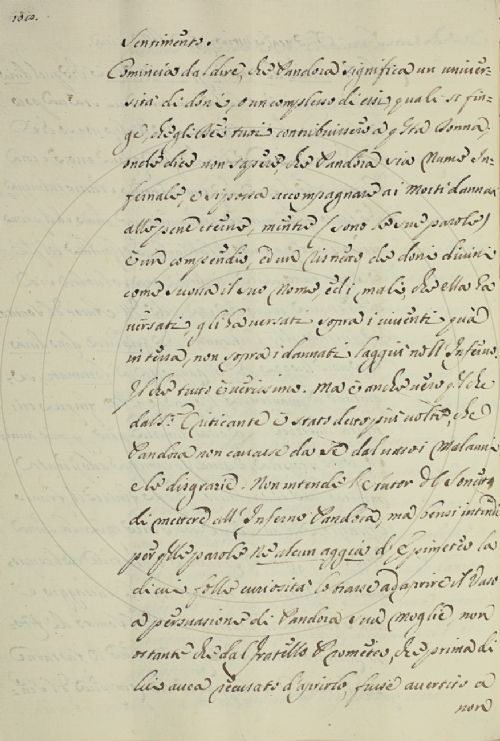 Sentimento.
Comincia dal dire, che Pandora significa un univer-
sità di doni, o un complesso di essi quali si fin-
ge, che gli Dei tutti contribuissero a qsta Donna,
onde dice non sapere, che Pandora sia Nume In-
fernale, e si possa accompagnare ai Morti dannati
alle pene eterne, mentre (sono le sue parole)
è un compendio, ed un ristretto de doni divini
come suona il suo Nome ed i mali, che ella ha
versati gli ha versati sopra i viventi quà
in terra, non sopra i dannati laggiù nell'Inferno.
Il che tutto è verissimo. Ma è anche vero
dal Sr. Criticante è stato detto più volte, che
Pandora non cavasse da se dal vaso i Malanni
e le disgrazie. Non intende l'Autor del Sonetto
di mettere all'Inferno Pandora, ma bensi intende
per qlle parole Ne alcun aggia d'Epimeteo la
di cui folle curiosità lo trasse ad aprire il Vaso
a persuasione di Pandora sua moglie non
ostante che dal fratello Prometeo, che prima di
lui avea ricusato d'aprirlo, fusse avertito a
non